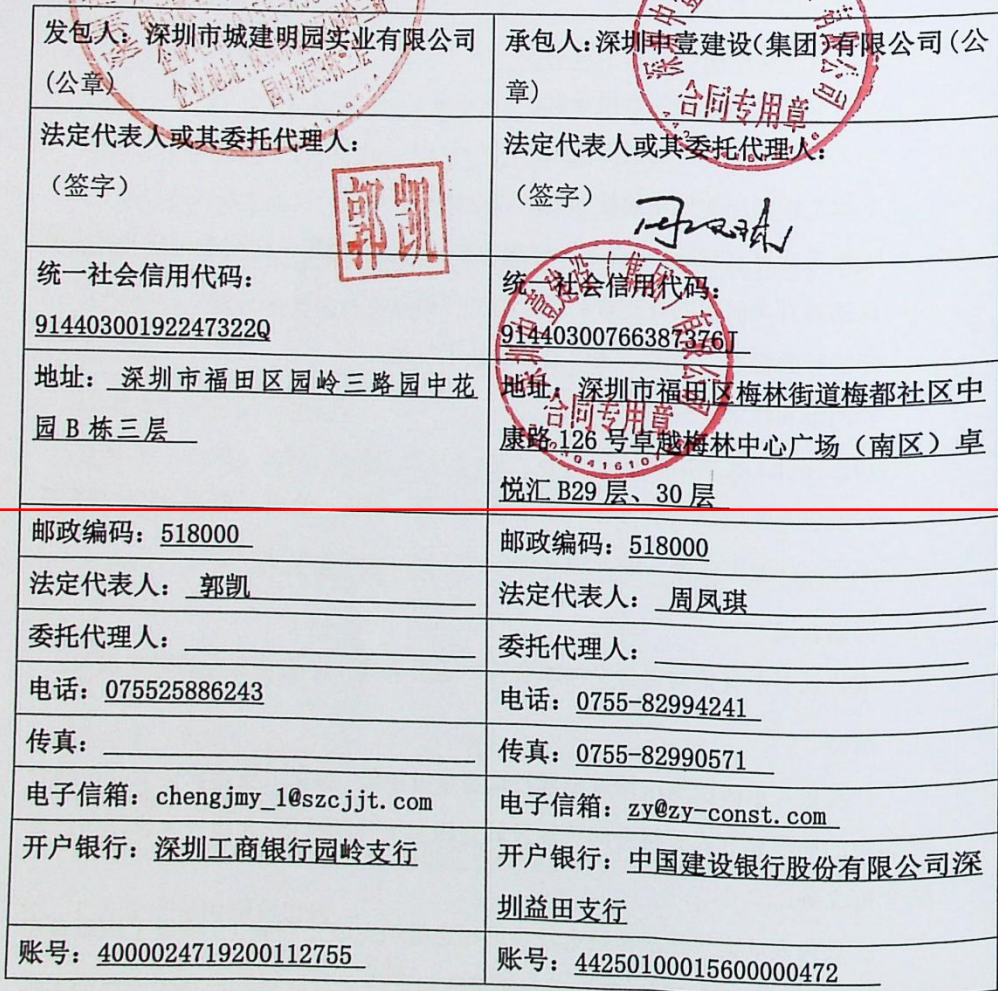 发包人：深圳市城建明园实业有限公司
(公章)
承包人：深圳中壹建设（集团）有限公司（公
章）
合同专用章
法定代表人或其委托代理人：
（签字）
郭凯
法定代表人或其委托代理人：
（签字）
统一社会信用代码：
91440300192247322Q
统一社会信用代码：
91440300766387376J
深圳中壹建设（集团）有限公司
合同专用章
地址：深圳市福田区园岭三路园中花
园B栋三层
地址：深圳市福田区梅林街道梅都社区中
康路126号卓越梅林中心广场（南区）卓
悦汇B29层、30层
邮政编码：518000
邮政编码：518000
法定代表人：郭凯
法定代表人：周凤琪
委托代理人：
委托代理人：
电话：075525886243
电话：0755-82994241
传真：
传真：0755-82990571
电子信箱：chengjmy_1@szcjjt.com
电子信箱：zy@zy-const.com
开户银行：深圳工商银行园岭支行
开户银行：中国建设银行股份有限公司深
圳益田支行
账号：4000024719200112755
账号：44250100015600000472